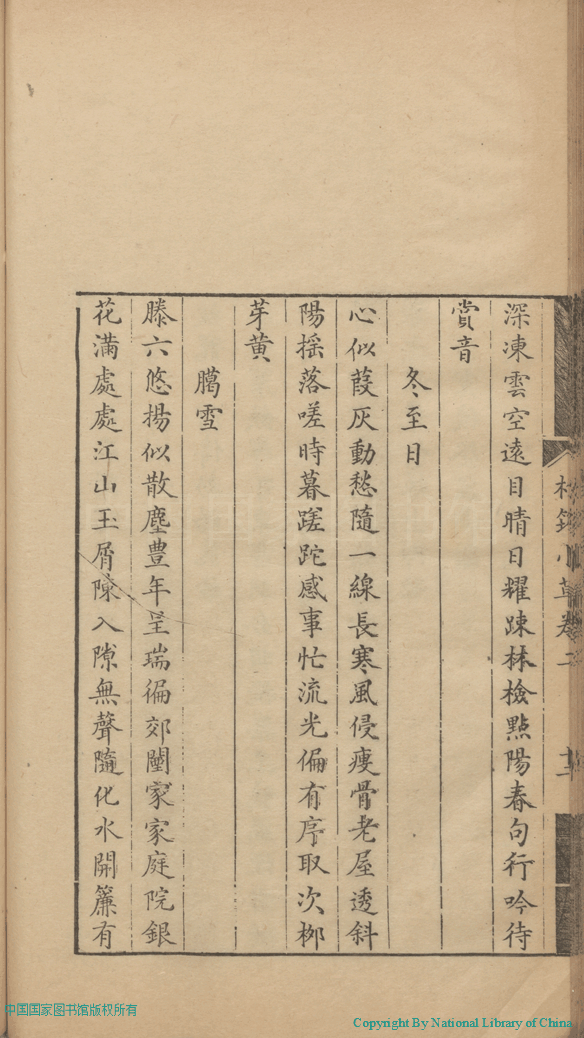 深凍雲空遠目晴日耀疎林檢點陽春句行吟待
賞音
冬至日
心似葭灰動愁隨一線長寒風侵瘦骨老屋透斜
陽揺落嗟時暮蹉跎感事忙流光偏有序取次栁
芽黄
臈雪
滕六悠揚似散塵豊年呈瑞徧郊闉家家庭院銀
花滿處處江山玉屑陳入隙無聲隨化水開簾有
小草卷二
中国国家图书馆版权所有
Copyright By National Library of China